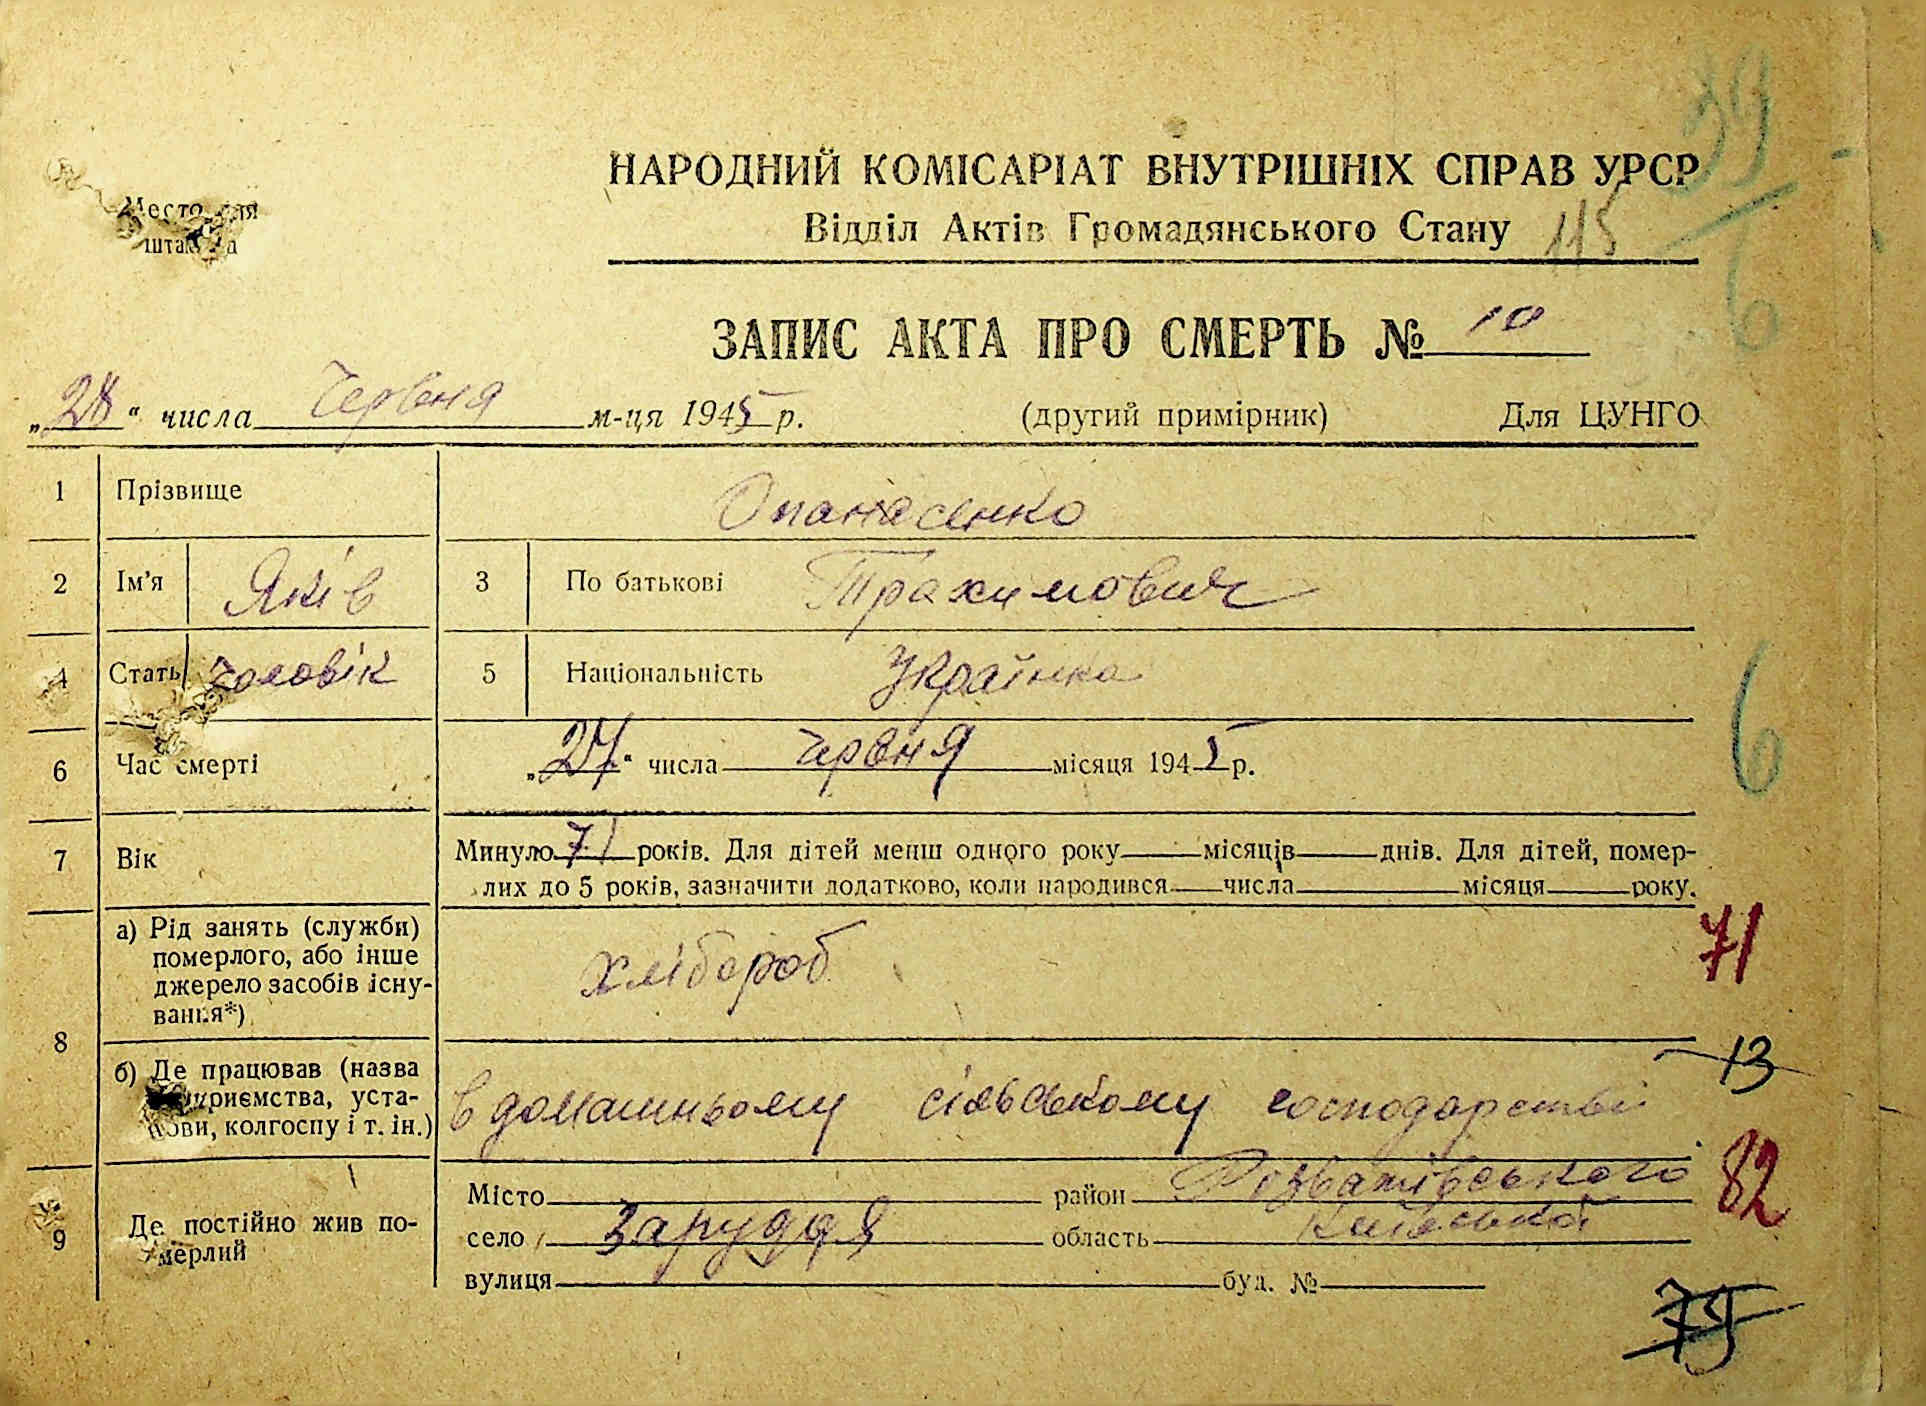 39
6
НАРОДНИЙ КОМІСАРІАТ ВНУТРІШНІХ СПРАВ УРСР
Место для
штампа
Відділ Актів Громадянського Стану 115
ЗАПИС АКТА ПРО СМЕРТЬ № 10
„28“ числа Червня м-ця 1945 р. (другий примірник) Для ЦУНГО
1 Прізвище Опанасенко
2 Ім'я Яків 3 По батькові Трохимович
4 Стать чоловік 5 Національність Українка
6
6 Час смерті „27“ числа червня місяця 1945 р.
7 Вік Минуло 71 років. Для дітей менш одного року місяців днів. Для дітей, помер-
лих до 5 років, зазначити додатково, коли народився числа місяця року.
71
8 а) Рід занять (служби)
померлого, або інше
джерело засобів існу-
вання*)
хлібороб
б) Де працював (назва
підприємства, уста-
нови, колгоспу і т. ін.)
в домашньому сільському господарстві
13
82
9 Де постійно жив по-
мерлий
Місто район Розважівського
село Заруддя область Київської
вулиця буд. №
79